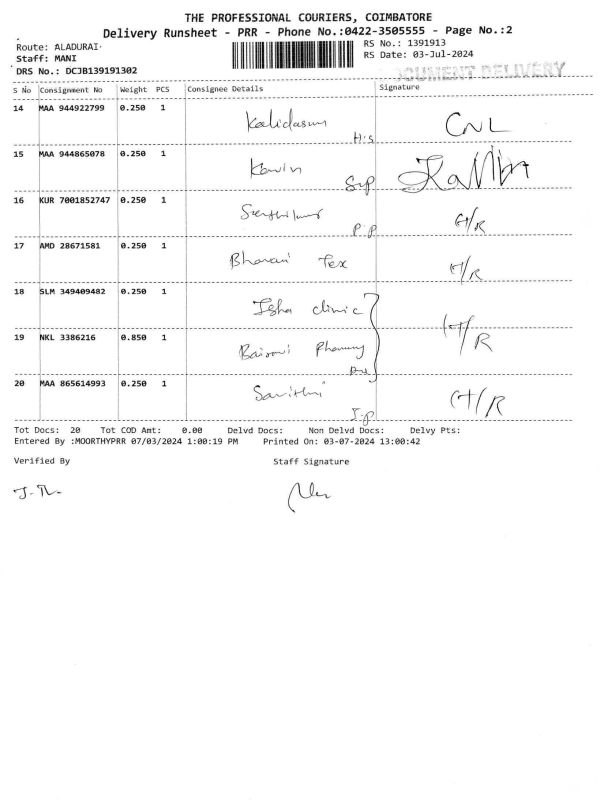 THE PROFESSIONAL COURIERS, COIMBATORE
Delivery Runsheet - PRR - Phone No.:0422-3505555 - Page No.:2
Route: ALADURAI
RS No.: 1391913
Staff: MANI
RS Date: 03-Jul-2024
DRS No.: DCJB139191302
DOCUMENT DELIVERY
S No Consignment No Weight PCS Consignee Details Signature
14 MAA 944922799 0.250 1 Kalidasan CNL
H's
15 MAA 944865078 0.250 1 Kavin
16 KUR 7001852747 0.250 1 P.P
17 AMD 28671581 0.250 1 Bhavani Tex
18 SLM 349409482 0.250 1 Isha clinic
19 NKL 3386216 0.850 1
20 MAA 865614993 0.250 1 Savithri
Tot Docs: 20 Tot COD Amt: 0.00 Delvd Docs: Non Delvd Docs: Delvy Pts:
Entered By :MOORTHYPRR 07/03/2024 1:00:19 PM Printed On: 03-07-2024 13:00:42
Verified By Staff Signature